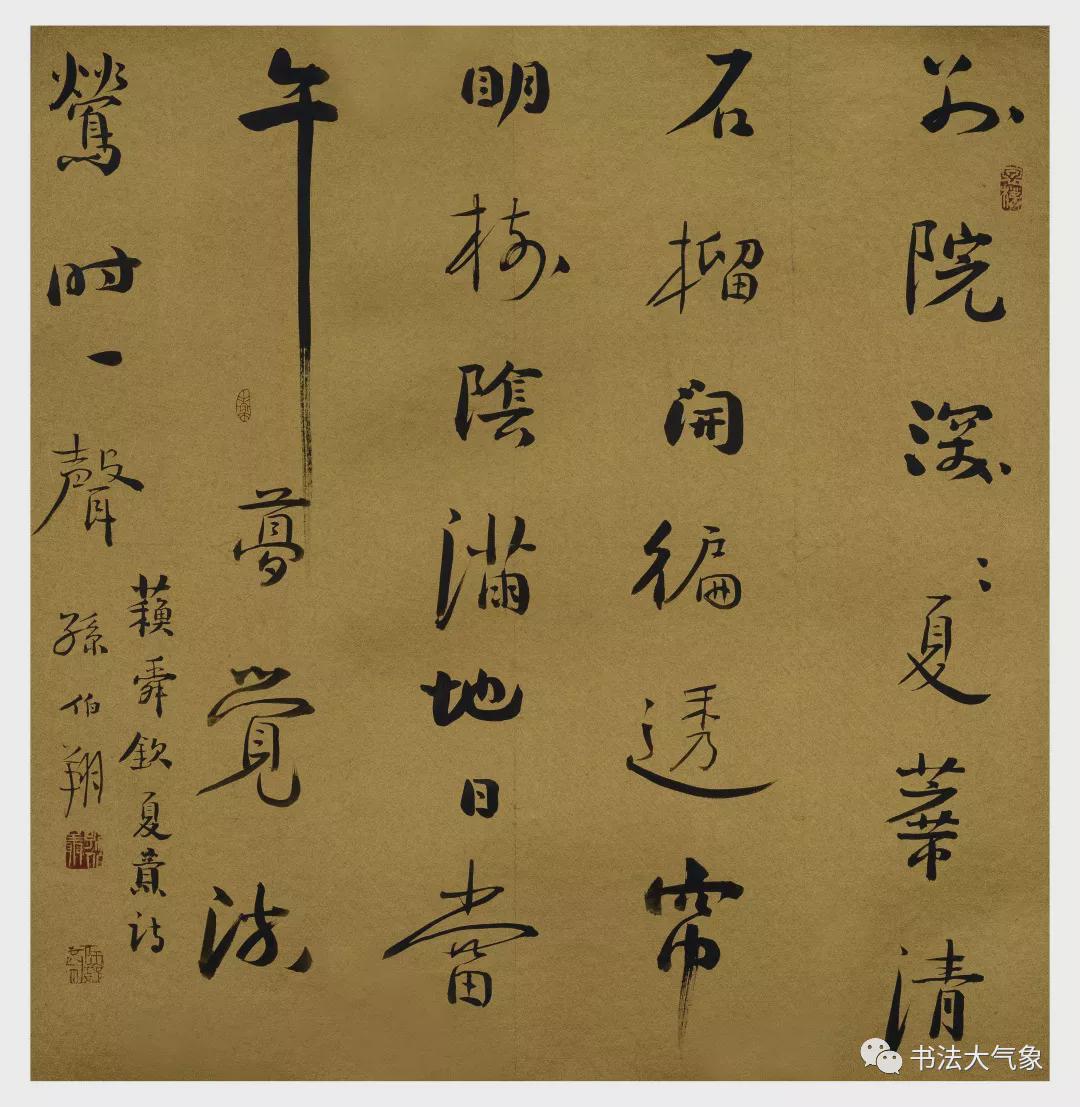 别院深〻夏簟清
石榴開徧透帘
明樹陰滿地日當
午夢覺流
鶯时一聲
蘇舜欽夏意詩
孫伯翔
书法大气象